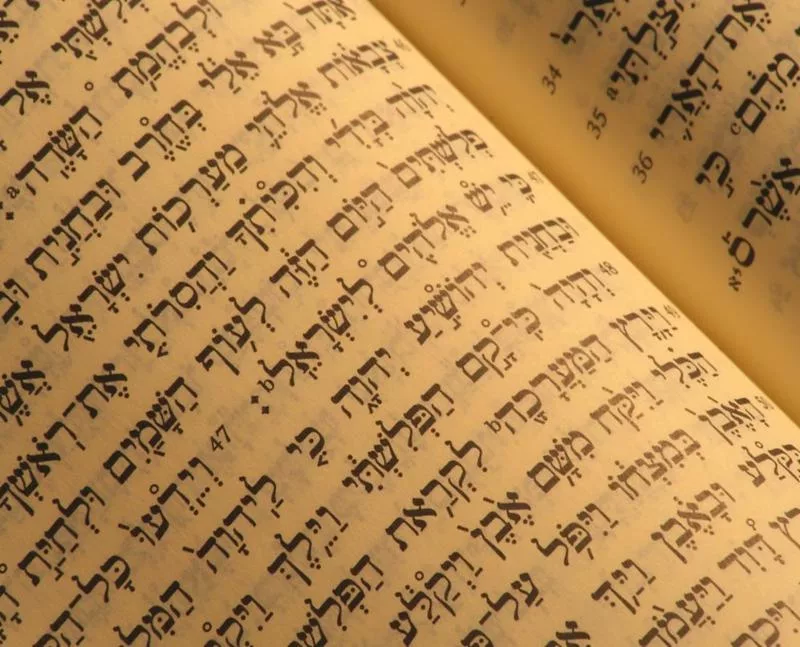 וּלְבֶהֱמַת הַשָּׂדֶה׃ a
אַתָּה בָּא אֵלַי בְּחֶרֶב וּבַחֲנִית וּבְ
צְבָאוֹת אֱלֹהֵי מַעַרְכוֹת יִשְׂרָאֵל אֲשֶׁ
יְהוָה בְּיָדִי וְהִכִּיתִךָ וַהֲסִרֹתִי אֶת־רֹאשְׁךָ
פְּלִשְׁתִּים הַיּוֹם הַזֶּה לְעוֹף הַשָּׁמַיִם וּלְחַיַּת הָ
כִּי יֵשׁ אֱלֹהִים לְיִשְׂרָאֵל׃ b 47 וְיֵדְעוּ כָּל־הַ
וּבַחֲנִית יְהוֹשִׁיעַ יְהוָה כִּי לַיהוָה הַמִּלְ
48 וְהָיָה כִּי־קָם הַפְּלִשְׁתִּי וַיֵּלֶךְ וַיִּקְ
וַיָּרָץ הַמַּעֲרָכָה b לִקְרַאת הַפְּלִשְׁ
הַכֶּלִי וַיִּקַּח מִשָּׁם אֶבֶן וַיְקַלַּע
הָאֶבֶן בְּמִצְחוֹ וַיִּפֹּל עַל־פָּ
בַּקֶּלַע וּבָאֶבֶן וַיַּךְ אֶ
דָּוִד וַיַּעֲמֹד
34
35 הִצַּלְתִּי a
36 אֶת־הָאֲרִי
מֵהֶם c כִּי
אֲשֶׁר